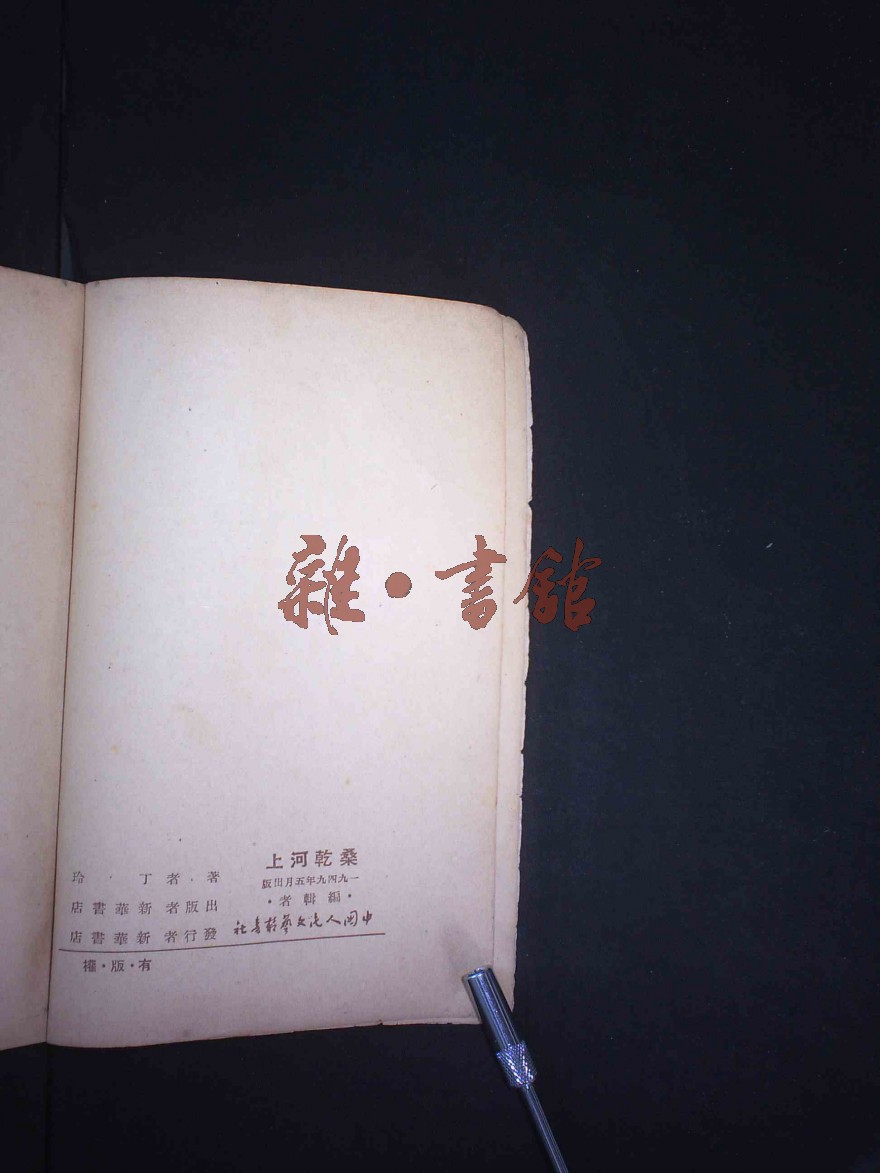 雜·書館
桑乾河上
一九四九年五月出版
·編輯者·
中國人民文藝叢書社
著者·丁·玲
出版者新華書店
發行者新華書店
有·版·權